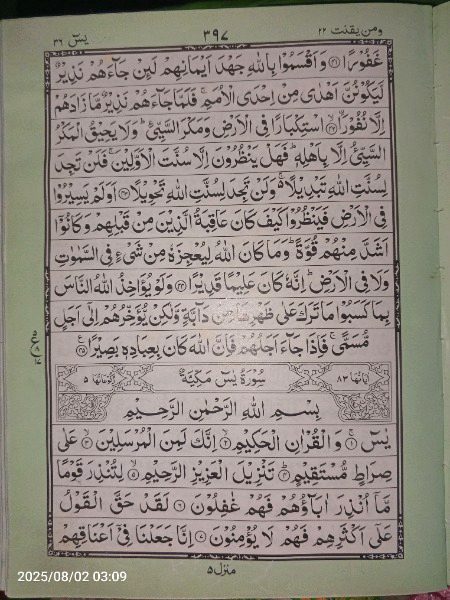 ومن يقنت ٢٢ ٣٩٧ يٰسٓ ٣٦
غَفُوْرًا ﴿٤١﴾ وَاَقْسَمُوْا بِاللّٰهِ جَهْدَ اَيْمَانِهِمْ لَئِنْ جَآءَهُمْ نَذِيْرٌ
لَّيَكُوْنُنَّ اَهْدٰى مِنْ اِحْدَى الْاُمَمِ ۚ فَلَمَّا جَآءَهُمْ نَذِيْرٌ مَّا زَادَهُمْ
اِلَّا نُفُوْرًا ﴿٤٢﴾ اسْتِكْبَارًا فِى الْاَرْضِ وَمَكْرَ السَّيِّئِ ؕ وَلَا يَحِيْقُ الْمَكْرُ
السَّيِّئُ اِلَّا بِاَهْلِهٖ ؕ فَهَلْ يَنْظُرُوْنَ اِلَّا سُنَّتَ الْاَوَّلِيْنَ ۚ فَلَنْ تَجِدَ
لِسُنَّتِ اللّٰهِ تَبْدِيْلًا ۚ وَلَنْ تَجِدَ لِسُنَّتِ اللّٰهِ تَحْوِيْلًا ﴿٤٣﴾ اَوَلَمْ يَسِيْرُوْا
فِى الْاَرْضِ فَيَنْظُرُوْا كَيْفَ كَانَ عَاقِبَةُ الَّذِيْنَ مِنْ قَبْلِهِمْ وَكَانُوْٓا
اَشَدَّ مِنْهُمْ قُوَّةً ؕ وَمَا كَانَ اللّٰهُ لِيُعْجِزَهٗ مِنْ شَىْءٍ فِى السَّمٰوٰتِ
وَلَا فِى الْاَرْضِ ؕ اِنَّهٗ كَانَ عَلِيْمًا قَدِيْرًا ﴿٤٤﴾ وَلَوْ يُؤَاخِذُ اللّٰهُ النَّاسَ
بِمَا كَسَبُوْا مَا تَرَكَ عَلٰى ظَهْرِهَا مِنْ دَآبَّةٍ وَّلٰكِنْ يُّؤَخِّرُهُمْ اِلٰٓى اَجَلٍ
مُّسَمًّى ۚ فَاِذَا جَآءَ اَجَلُهُمْ فَاِنَّ اللّٰهَ كَانَ بِعِبَادِهٖ بَصِيْرًا ﴿٤٥﴾
اٰيَاتُهَا ٨٣ سُوْرَةُ يٰسٓ مَكِّيَّةٌ رُكُوْعَاتُهَا ٥
بِسْمِ اللّٰهِ الرَّحْمٰنِ الرَّحِيْمِ
يٰسٓ ﴿١﴾ وَالْقُرْاٰنِ الْحَكِيْمِ ﴿٢﴾ اِنَّكَ لَمِنَ الْمُرْسَلِيْنَ ﴿٣﴾ عَلٰى
صِرَاطٍ مُّسْتَقِيْمٍ ﴿٤﴾ تَنْزِيْلَ الْعَزِيْزِ الرَّحِيْمِ ﴿٥﴾ لِتُنْذِرَ قَوْمًا
مَّآ اُنْذِرَ اٰبَآؤُهُمْ فَهُمْ غٰفِلُوْنَ ﴿٦﴾ لَقَدْ حَقَّ الْقَوْلُ
عَلٰٓى اَكْثَرِهِمْ فَهُمْ لَا يُؤْمِنُوْنَ ﴿٧﴾ اِنَّا جَعَلْنَا فِىْٓ اَعْنَاقِهِمْ
منزل ٥
2025/08/02 03:09